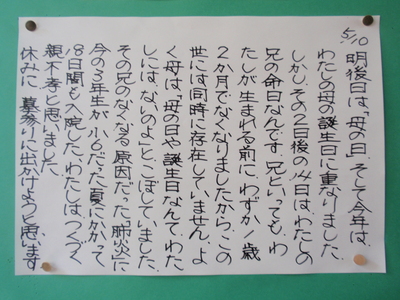 5/10
明後日は「母の日」そして今年は、
わたしの母の誕生日に重なりました。
しかしその2日後の14日はわたしの
兄の命日なんです。兄といっても、わ
たしが生まれる前に、わずか1歳
2か月でなくなりましたから、この
世には同時に存在していません。よ
く母は、「母の日や誕生日なんてわた
しにはないのよ」と、こぼしていました。
その兄のなくなる原因だった「肺炎」に
今の3年生が小6だった夏にかかって
18日間も入院した、わたしはつくづく
親不孝と思いました。
休みに墓参りに出かけようと思います